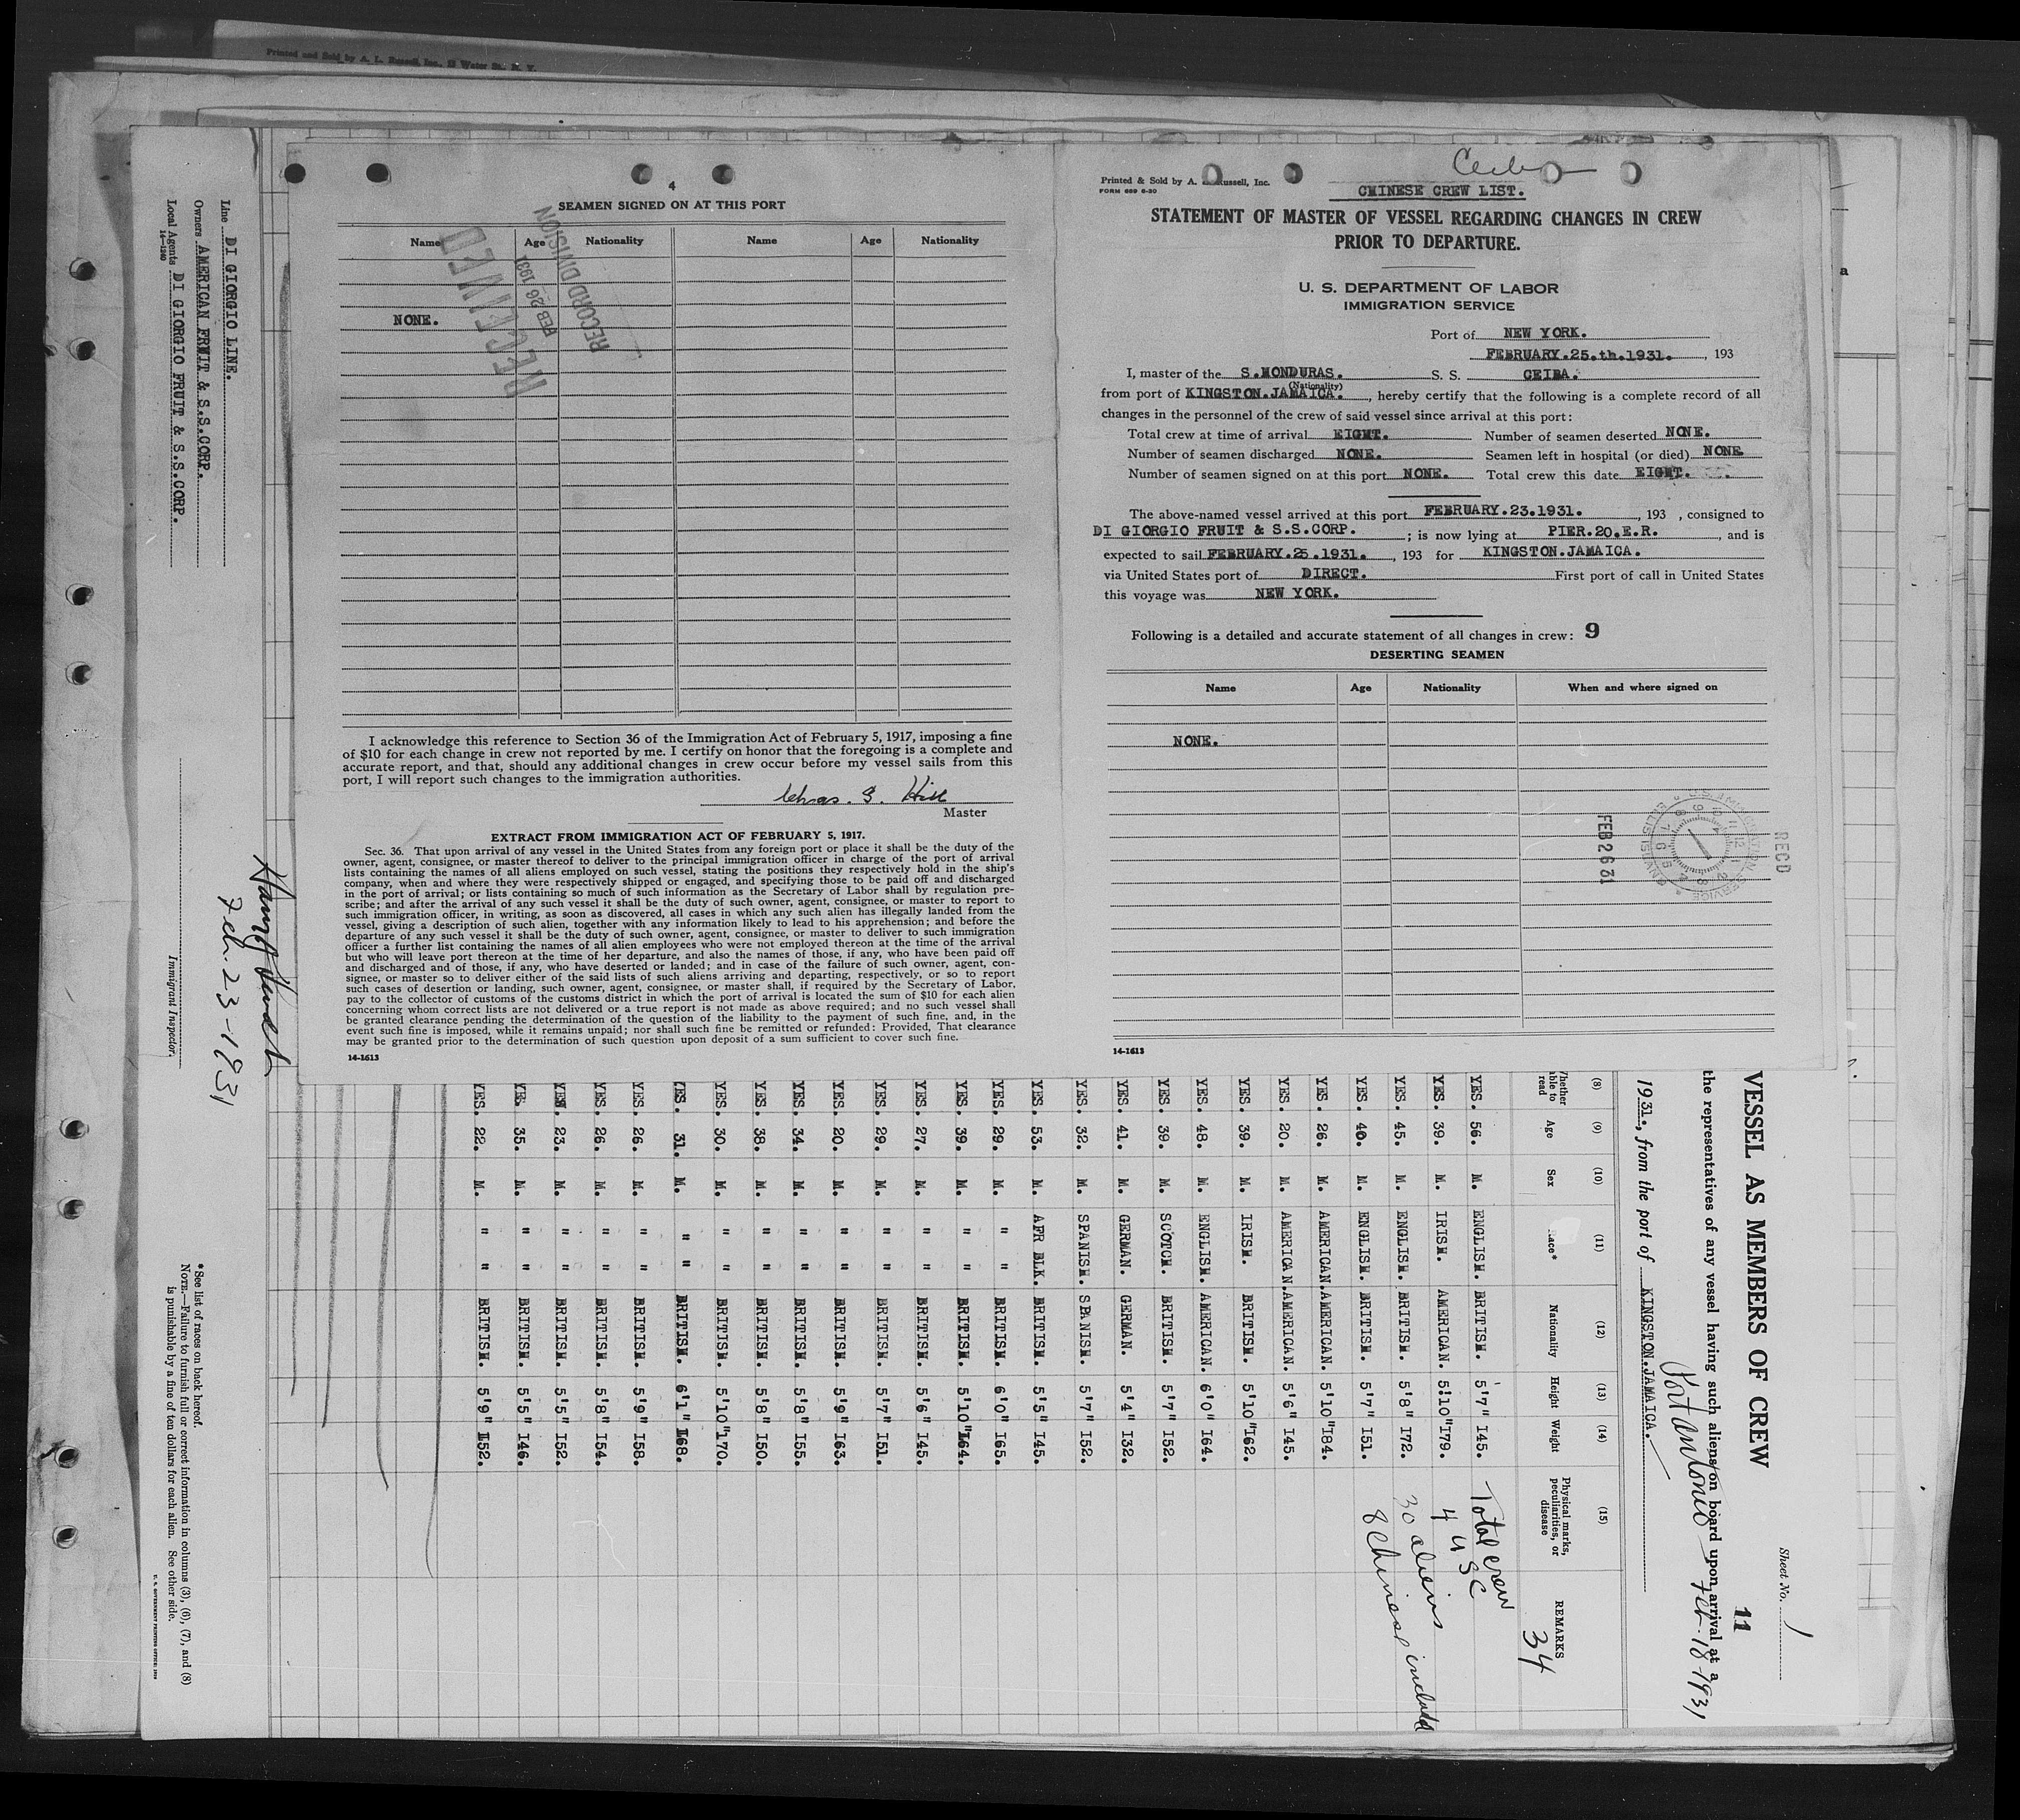 Printed and Sold by A. L. Russell, Inc., Water St., N. Y.
4
SEAMEN SIGNED ON AT THIS PORT
Name Age Nationality Name Age Nationality
NONE.
RECEIVED
FEB 26 1931
RECORD DIVISION
I acknowledge this reference to Section 36 of the Immigration Act of February 5, 1917, imposing a fine
of $10 for each change in crew not reported by me. I certify on honor that the foregoing is a complete and
accurate report, and that, should any additional changes in crew occur before my vessel sails from this
port, I will report such changes to the immigration authorities.
Chas. G. Hill
Master
EXTRACT FROM IMMIGRATION ACT OF FEBRUARY 5, 1917.
Sec. 36. That upon arrival of any vessel in the United States from any foreign port or place it shall be the duty of the
owner, agent, consignee, or master thereof to deliver to the principal immigration officer in charge of the port of arrival
lists containing the names of all aliens employed on such vessel, stating the positions they respectively hold in the ship's
company, when and where they were respectively shipped or engaged, and specifying those to be paid off and discharged
in the port of arrival; or lists containing so much of such information as the Secretary of Labor shall by regulation pre-
scribe; and after the arrival of any such vessel it shall be the duty of such owner, agent, consignee, or master to report to
such immigration officer, in writing, as soon as discovered, all cases in which any such alien has illegally landed from the
vessel, giving a description of such alien, together with any information likely to lead to his apprehension; and before the
departure of any such vessel it shall be the duty of such owner, agent, consignee, or master to deliver to such immigration
officer a further list containing the names of all alien employees who were not employed thereon at the time of the arrival
but who will leave port thereon at the time of her departure, and also the names of those, if any, who have been paid off
and discharged and of those, if any, who have deserted or landed; and in case of the failure of such owner, agent, con-
signee, or master so to deliver either of the said lists of such aliens arriving and departing, respectively, or so to report
such cases of desertion or landing, such owner, agent, consignee, or master shall, if required by the Secretary of Labor,
pay to the collector of customs of the customs district in which the port of arrival is located the sum of $10 for each alien
concerning whom correct lists are not delivered or a true report is not made as above required; and no such vessel shall
be granted clearance pending the determination of the question of the liability to the payment of such fine, and, in the
event such fine is imposed, while it remains unpaid; nor shall such fine be remitted or refunded: Provided, That clearance
may be granted prior to the determination of such question upon deposit of a sum sufficient to cover such fine.
14-1613
Ceiba
Printed & Sold by A. Russell, Inc.
FORM 689 6-30
CHINESE CREW LIST.
STATEMENT OF MASTER OF VESSEL REGARDING CHANGES IN CREW
PRIOR TO DEPARTURE.
U. S. DEPARTMENT OF LABOR
IMMIGRATION SERVICE
Port of NEW YORK.
FEBRUARY.25.th.1931. , 193
I, master of the S.HONDURAS. S. S. CEIBA.
(Nationality)
from port of KINGSTON.JAMAICA. , hereby certify that the following is a complete record of all
changes in the personnel of the crew of said vessel since arrival at this port:
Total crew at time of arrival EIGHT. Number of seamen deserted NONE.
Number of seamen discharged NONE. Seamen left in hospital (or died) NONE
Number of seamen signed on at this port NONE. Total crew this date EIGHT.
The above-named vessel arrived at this port FEBRUARY.23.1931. , 193 , consigned to
DI GIORGIO FRUIT & S.S.CORP. ; is now lying at PIER.20.E.R. , and is
expected to sail FEBRUARY.25.1931. , 193 for KINGSTON.JAMAICA.
via United States port of DIRECT. First port of call in United States
this voyage was NEW YORK.
Following is a detailed and accurate statement of all changes in crew: 9
DESERTING SEAMEN
Name Age Nationality When and where signed on
NONE.
FEB 26 31
RECD
14-1613
Sheet No. 1
11
VESSEL AS MEMBERS OF CREW
the representatives of any vessel having such aliens on board upon arrival at a
Port Antonio Feb. 18-1931
1931, from the port of KINGSTON.JAMAICA.
(8) (9) (10) (11) (12) (13) (14) (15)
Whether able to read Age Sex Race* Nationality Height Weight Physical marks, peculiarities, or disease REMARKS
34
YES. 56. M. ENGLISH. BRITISH. 5'7" 145.
YES. 39. M. IRISH. AMERICAN. 5'10" 179.
YES. 45. M. ENGLISH. BRITISH. 5'8" 172.
YES. 40. M. ENGLISH. BRITISH. 5'7" 151.
YES. 26. M. AMERICAN. AMERICAN. 5'10" 184.
YES. 20. M. AMERICAN. AMERICAN. 5'6" 145.
YES. 39. M. IRISH. BRITISH. 5'10" 162.
YES. 48. M. ENGLISH. AMERICAN. 6'0" 164.
YES. 39. M. SCOTCH. BRITISH. 5'7" 152.
YES. 41. M. GERMAN. GERMAN. 5'4" 132.
YES. 32. M. SPANISH. SPANISH. 5'7" 152.
YES. 53. M. AFR BLK. BRITISH. 5'5" 145.
YES. 29. M. " " BRITISH. 6'0" 165.
YES. 39. M. " " BRITISH. 5'10" 164.
YES. 27. M. " " BRITISH. 5'6" 145.
YES. 29. M. " " BRITISH. 5'7" 151.
YES. 20. M. " " BRITISH. 5'9" 163.
YES. 34. M. " " BRITISH. 5'8" 155.
YES. 38. M. " " BRITISH. 5'8" 150.
YES. 30. M. " " BRITISH. 5'10" 170.
YES. 31. M. " " BRITISH. 6'1" 168.
YES. 26. M. " " BRITISH. 5'9" 158.
YES. 26. M. " " BRITISH. 5'8" 154.
YES. 23. M. " " BRITISH. 5'5" 152.
YE. 35. M. " " BRITISH. 5'5" 146.
YES. 22. M. " " BRITISH. 5'9" 152.
Total crew
4 USC
30 aliens
8 Chinese included
Feb. 23-1931
Immigrant Inspector.
Line DI GIORGIO LINE.
Owners AMERICAN FRUIT & S.S.CORP.
Local Agents DI GIORGIO FRUIT & S.S.CORP.
14-1240
* See list of races on back hereof.
NOTE.—Failure to furnish full or correct information in columns (3), (6), (7), and (8)
is punishable by a fine of ten dollars for each alien. See other side.
U. S. GOVERNMENT PRINTING OFFICE